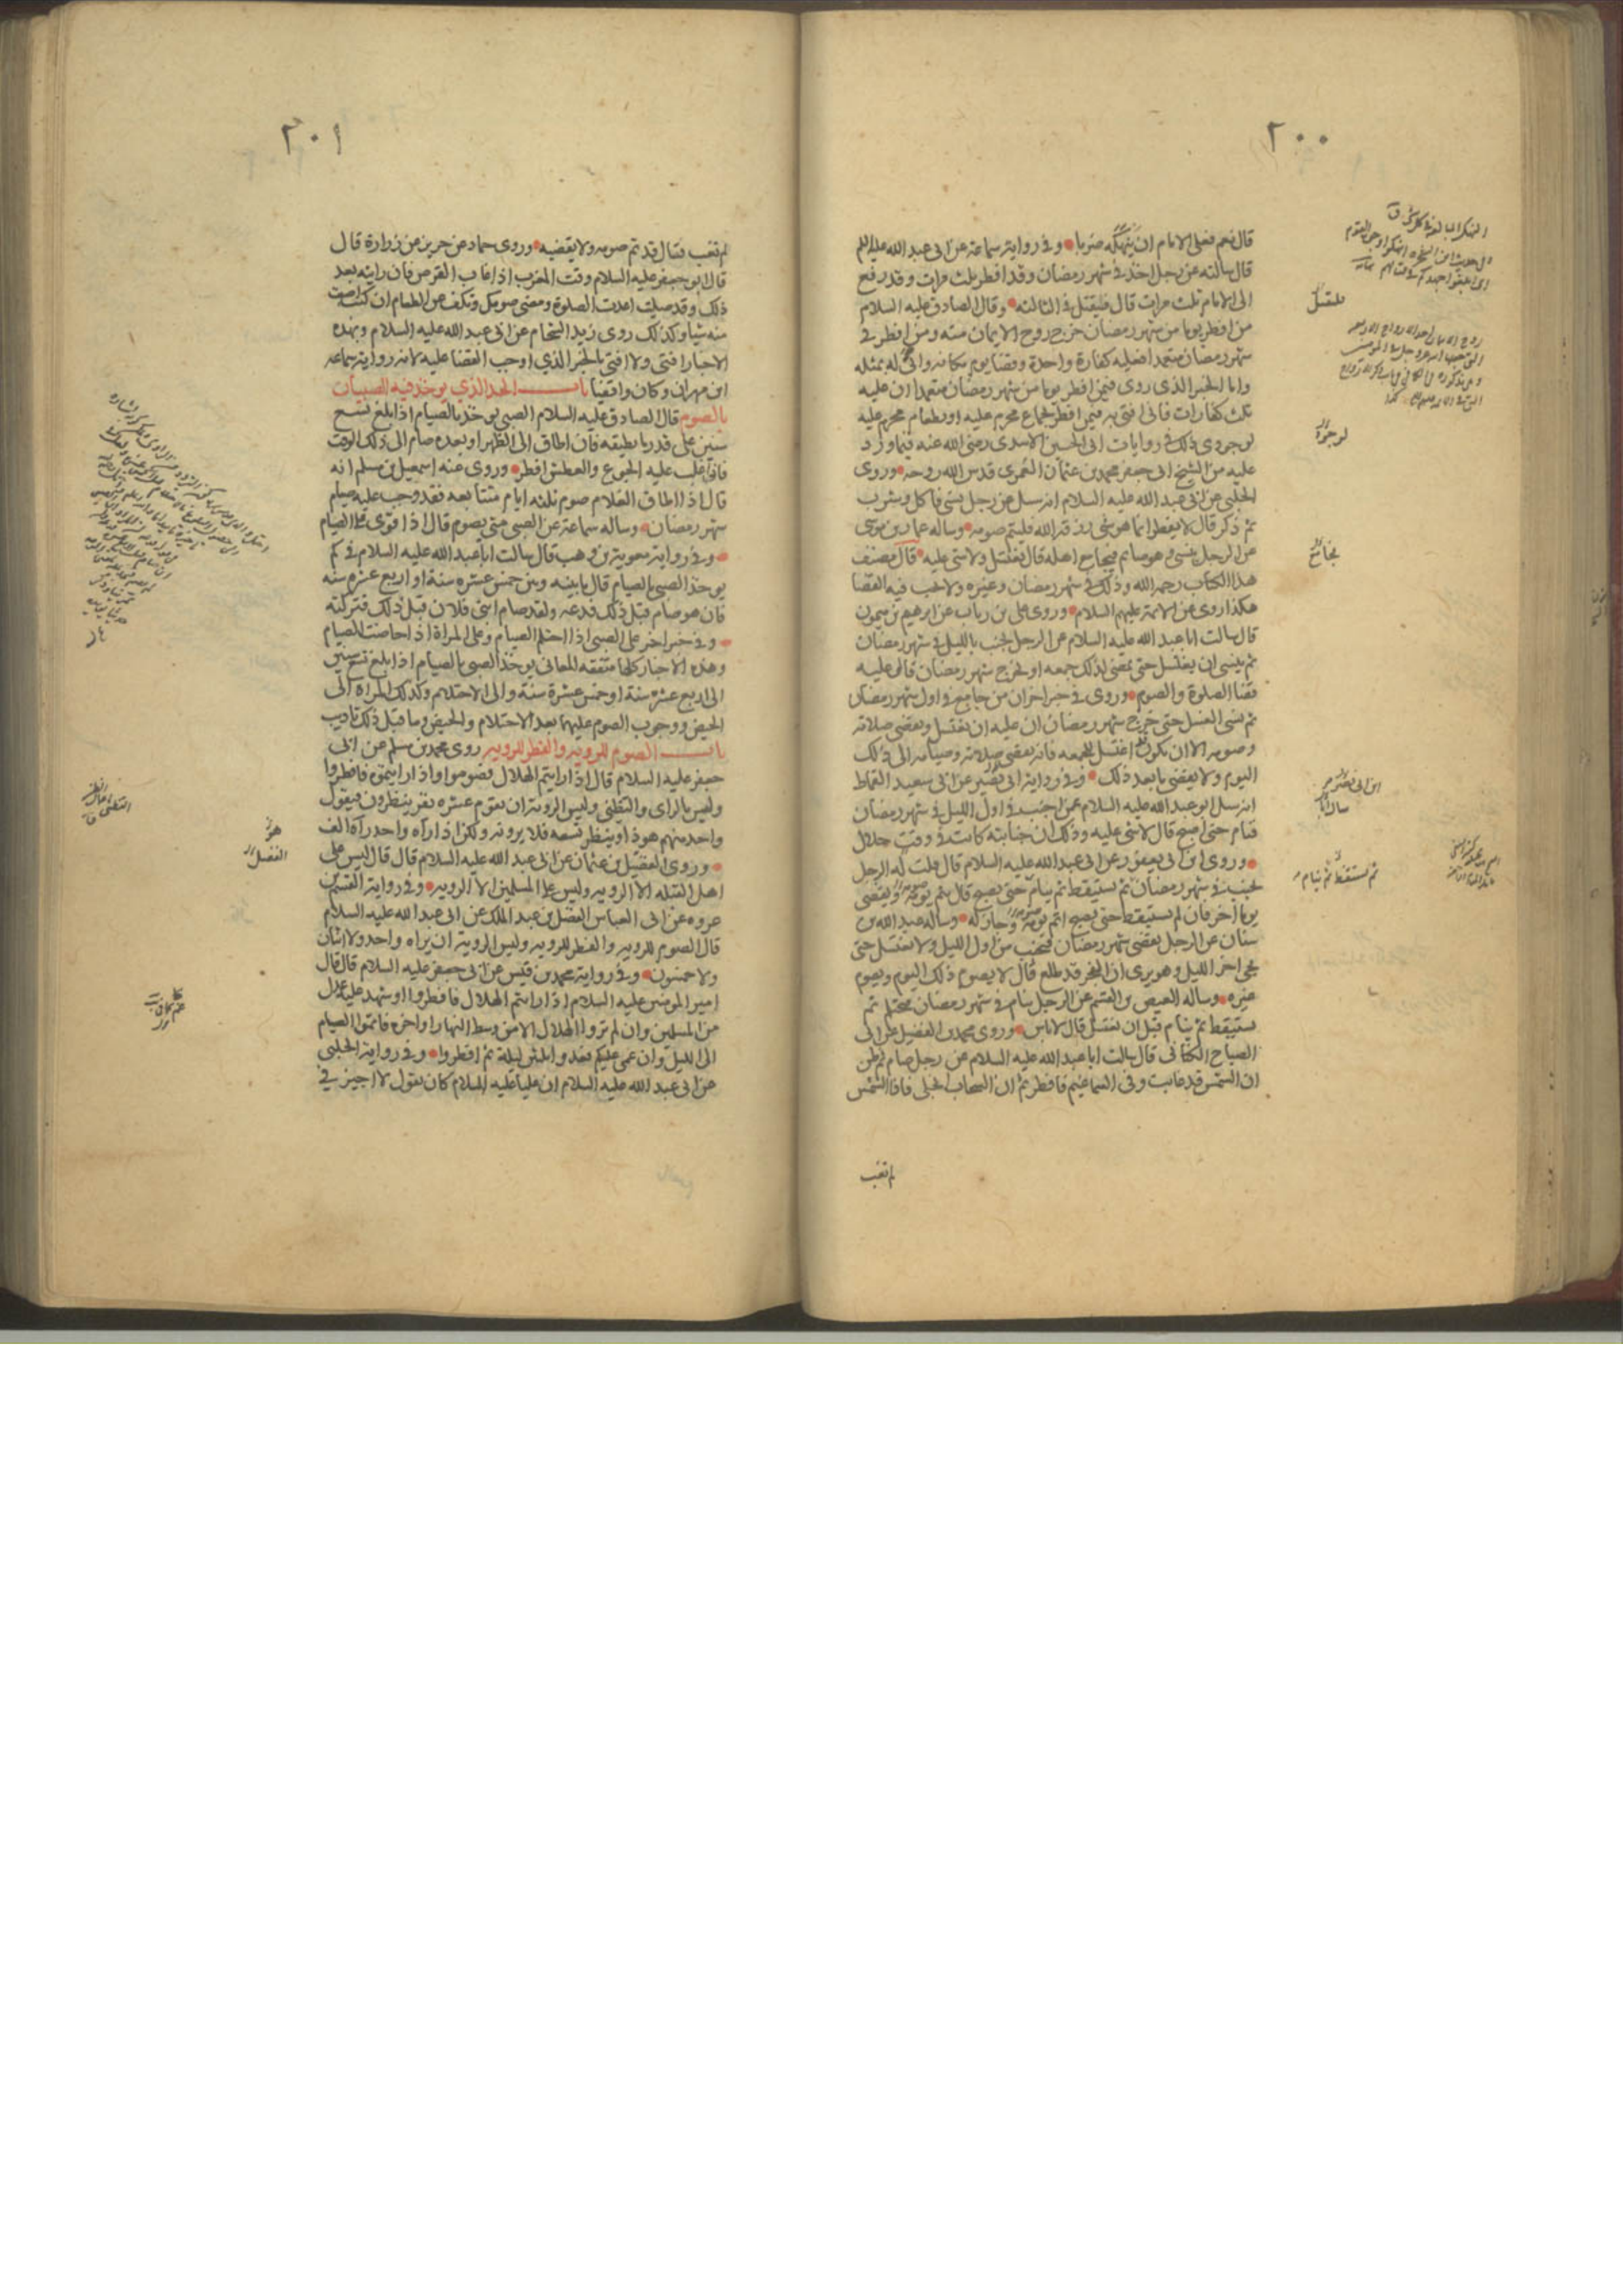 ٢٠٠
قال نعم فعلى الامام ان ينهكه ضربا وفى رواية سماعة عن ابى عبد الله عليه السلم
قال سالته عن رجل اخذ فى شهر رمضان وقد افطر ثلث مرات وقد رفع
الى الامام ثلث مرات قال فليقتل فى الثالثة وقال الصادق عليه السلام
من افطر يوما من شهر رمضان خرج روح الايمان منه ومن افطر فى
شهر رمضان متعمدا فعليه كفارة واحدة وقضا يوم مكانه وانى له بمثله
واما الخبر الذى روى فيمن افطر يوما من شهر رمضان متعمدا ان عليه
ثلث كفارات فانى افتى به فيمن افطر بجماع محرم عليه او بطعام محرم عليه
لوجودى ذلك فى روايات ابى الحسين الاسدى رضى الله عنه فيما ورد
عليه من الشيخ ابى جعفر محمد بن عثمان العمرى قدس الله روحه وروى
الحلبى عن ابى عبد الله عليه السلام انه سئل عن رجل نسى فاكل وشرب
ثم ذكر قال لا يفطر انما هو شى رزقه الله فليتم صومه وساله عمار بن موسى
عن الرجل ينسى وهو صائم فيجامع اهله قال يغتسل ولا شى عليه قال مصنف
هذا الكتاب رحمه الله وذلك فى شهر رمضان وغيره ولا يجب فيه القضا
هكذا روى عن الائمة عليهم السلام وروى على بن رياب عن ابرهيم بن ميمون
قال سالت ابا عبد الله عليه السلام عن الرجل يجنب بالليل فى شهر رمضان
ثم ينسى ان يغتسل حتى يمضى لذلك جمعه او يخرج شهر رمضان قال عليه
قضا الصلوة والصوم وروى فى خبر اخر ان من جامع فى اول شهر رمضان
ثم نسى الغسل حتى خرج شهر رمضان ان عليه ان يغتسل ويقضى صلاته
وصومه الا ان يكون قد اغتسل للجمعه فانه يقضى صلاته وصيامه الى ذلك
اليوم ولا يقضى ما بعد ذلك وفى رواية ابى نصير عن ابى سعيد القماط
انه سئل ابو عبد الله عليه السلام عمن اجنب فى اول الليل فى شهر رمضان
فنام حتى اصبح قال لا شى عليه وذلك ان جنابته كانت فى وقت حلال
وروى ابن ابى يعفور عن ابى عبد الله عليه السلام قال قلت له الرجل
يجنب فى شهر رمضان ثم يستيقظ ثم ينام حتى يصبح قال يتم يومه ويقضى
يوما اخر فان لم يستيقظ حتى يصبح اتم يومه وجاز له وساله عبد الله بن
سنان عن الرجل يقضى شهر رمضان فيجنب من اول الليل ولا يغتسل حتى
يجى اخر الليل وهو يرى ان الفجر قد طلع قال لا يصوم ذلك اليوم ويصوم
غيره وساله العيص بن القسم عن الرجل ينام فى شهر رمضان فيحتلم ثم
يستيقظ ثم ينام قبل ان يغتسل قال لا باس وروى محمد بن الفضيل عن ابى
الصباح الكنانى قال سالت ابا عبد الله عليه السلام عن رجل صام ثم ظن
ان الشمس قد غابت وفى السما غيم فافطر ثم ان السحاب انجلى فاذا الشمس
لم تغب
فليقتل
لوجود
يجامع
ثم يستيقظ ثم ينام
٢٠١
لم تغب فقال قد تم صومه ولا يقضيه وروى حماد عن حريز عن زرارة قال
قال ابو جعفر عليه السلام وقت المغرب اذا غاب القرص فان رايته بعد
ذلك وقد صليت اعدت الصلوة ومضى صومك وتكف عن الطعام ان كنت اصبت
منه شيا وكذلك روى زيد الشحام عن ابى عبد الله عليه السلام وبهذه
الاخبار افتى ولا افتى بالخبر الذي اوجب القضا عليه لانه رواية سماعه
ابن مهران وكان واقفيا باب الحد الذي يوخذ فيه الصبيان
بالصوم قال الصادق عليه السلام الصبى يوخذ بالصيام اذا بلغ تسع
سنين على قدر ما يطيقه فان اطاق الى الظهر او بعده صام الى ذلك الوقت
فاذا غلب عليه الجوع والعطش افطر وروى عنه اسمعيل بن مسلم انه
قال اذا اطاق الغلام صوم ثلثه ايام متتابعه فقد وجب عليه صيام
شهر رمضان وساله سماعة عن الصبى متى يصوم قال اذا قوى على الصيام
وفى رواية معوية بن وهب قال سالت ابا عبد الله عليه السلام فى كم
يوخذ الصبى بالصيام قال ما بينه وبين خمس عشره سنة او اربع عشره سنه
فان هو صام قبل ذلك فدعه ولقد صام ابنى فلان قبل ذلك فتركته
وفى خبر اخر على الصبى اذا احتلم الصيام وعلى المراة اذا حاضت الصيام
وهذه الاخبار كلها متفقه المعانى يوخذ الصبى بالصيام اذا بلغ تسع سنين
الى اربع عشره سنة او خمس عشرة سنة والى الاحتلام وكذلك المراة الى
الحيض ووجوب الصوم عليهما بعد الاحتلام والحيض وما قبل ذلك تاديب
باب الصوم للرويه والفطر للرويه روى محمد بن مسلم عن ابى
جعفر عليه السلام قال اذا رايتم الهلال فصوموا واذا رايتموه فافطروا
وليس بالراى والتظنى وليس الروية ان يقوم عشره نفر ينظرون فيقول
واحد منهم هو ذا وينظر تسعه فلا يرونه ولكن اذا رآه واحد رآه الف
وروى الفضيل بن عثمان عن ابى عبد الله عليه السلام قال قال ليس على
اهل القبله الا الرويه وليس على المسلمين الا الرويه وفى رواية القسم بن
عروه عن ابى العباس الفضل بن عبد الملك عن ابى عبد الله عليه السلام
قال الصوم للرويه والفطر للرويه وليس الروية ان يراه واحد ولا اثنان
ولا خمسون وفى رواية محمد بن قيس عن ابى جعفر عليه السلام قال قال
امير المومنين عليه السلام اذا رايتم الهلال فافطروا او شهد عليه عدل
من المسلمين وان لم تروا الهلال الا من وسط النهار او اخره فاتموا الصيام
الى الليل وان غمى عليكم فعدوا ثلثين ليلة ثم افطروا وفى رواية الحلبى
عن ابى عبد الله عليه السلام ان عليا عليه السلام كان يقول لا اجيز فى
الفضل